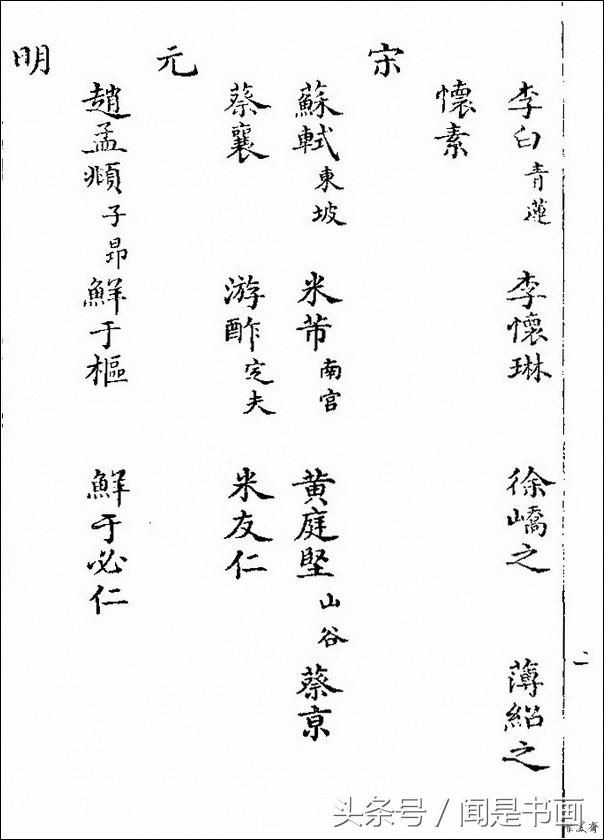 李白青蓮 李懷琳 徐嶠之 薄紹之
懷素
宋
蘇軾東坡 米芾南宮 黄庭堅山谷 蔡京
蔡襄 游酢定夫 米友仁
元
趙孟頫子昂 鮮于樞 鮮于必仁
明
二
头条号 / 闻是书画